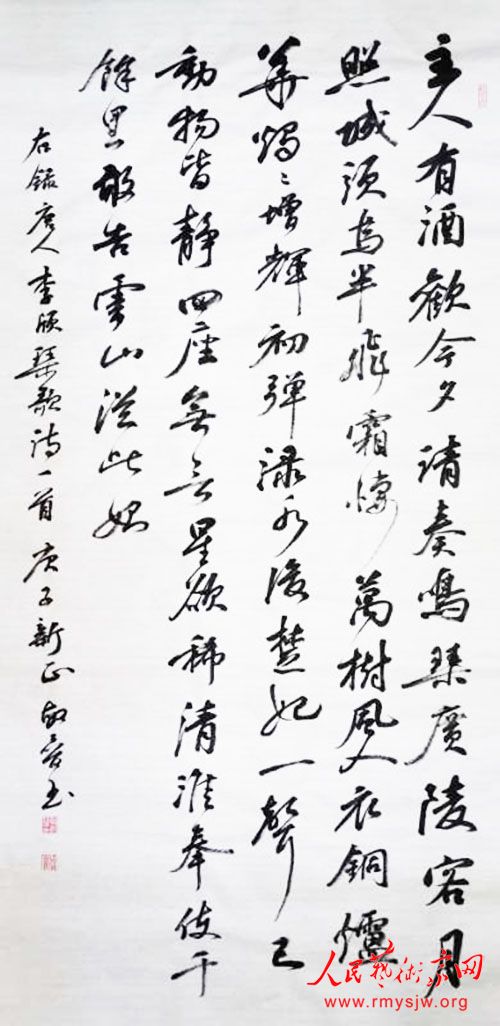 主人有酒歡今夕請奏鳴琴廣陵客月
照城頭烏半飛霜悽萬樹風入衣銅爐
華燭〻增輝初彈淥水後楚妃一聲已
動物皆靜四座無言星欲稀清淮奉使千
餘里敢告雲山從此始
右録唐人李頎琴歌詩一首 庚子新正 書
人民藝術家网
www.rmysjw.org